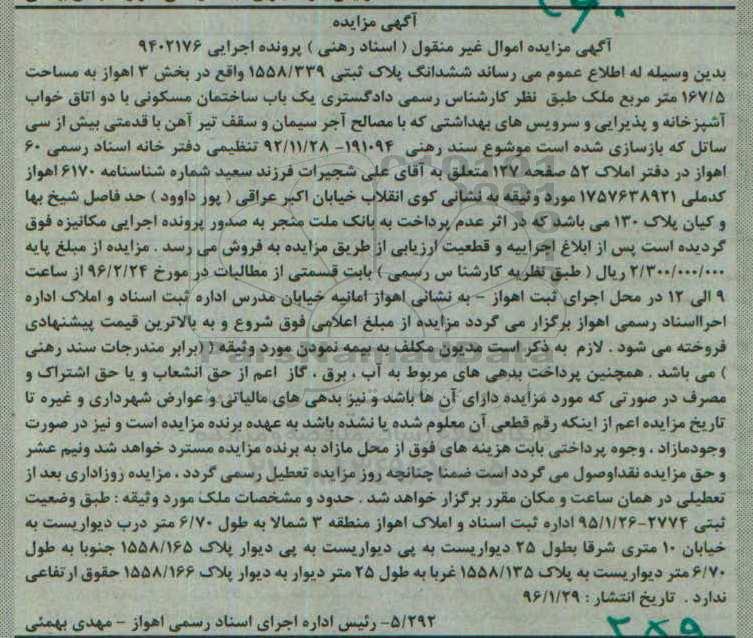 آگهی مزایده
آگهی مزایده اموال غیر منقول ( اسناد رهنی ) پرونده اجرایی ۹۴۰۲۱۷۶
بدین وسیله له اطلاع عموم می رساند ششدانگ پلاک ثبتی ۱۵۵۸/۳۳۹ واقع در بخش ۳ اهواز به مساحت
۱۶۷/۵ متر مربع ملک طبق نظر کارشناس رسمی دادگستری یک باب ساختمان مسکونی با دو اتاق خواب
آشپزخانه و پذیرایی و سرویس های بهداشتی که با مصالح آجر سیمان و سقف تیر آهن با قدمتی بیش از سی
سائل که بازسازی شده است موشوع سند رهنی ۱۹۱۰۹۴- ۹۲/۱۱/۲۸ تنظیمی دفتر خانه اسناد رسمی ۶۰
اهواز در دفتر املاک ۵۲ صفحه ۱۳۷ متعلق به آقای علی شجیرات فرزند سعید شماره شناسنامه ۶۱۷۰ اهواز
کدملی ۱۷۵۷۶۳۸۹۲۱ مورد وثیقه به نشانی کوی انقلاب خیابان اکبر عراقی ( پور داوود ) حد فاصل شیخ بها
و کیان پلاک ۱۳۰ می باشد که در اثر عدم پرداخت به بانک ملت منجر به صدور پرونده اجرایی مکانیزه فوق
گردیده است پس از ابلاغ اجراییه و قطعیت ارزیابی از طریق مزایده به فروش می رسد . مزایده از مبلغ پایه
۲/۳۰۰/۰۰۰/۰۰۰ ریال ( طبق نظریه کارشنا س رسمی ) بابت قسمتی از مطالبات در مورخ ۹۶/۲/۲۴ از ساعت
۹ الی ۱۲ در محل اجرای ثبت اهواز - به نشانی اهواز امانیه خیابان مدرس اداره ثبت اسناد و املاک اداره
احرااسناد رسمی اهواز برگزار می گردد مزایده از مبلغ اعلامی فوق شروع و به بالاترین قیمت پیشنهادی
فروخته می شود . لازم به ذکر است مدیون مکلف به بیمه نمودن مورد وثیقه ( (برابر مندرجات سند رهنی
) می باشد . همچنین پرداخت بدهی های مربوط به آب ، برق ، گاز اعم از حق انشعاب و یا حق اشتراک و
مصرف در صورتی که مورد مزایده دارای آن ها باشد و نیز بدهی های مالیاتی و عوارض شهرداری و غیره تا
تاریخ مزایده اعم از اینکه رقم قطعی آن معلوم شده یا نشده باشد به عهده برنده مزایده است و نیز در صورت
وجودمازاد ، وجوه پرداختی بابت هزینه های فوق از محل مازاد به برنده مزایده مسترد خواهد شد ونیم عشر
و حق مزایده نقداوصول می گردد است ضمنا چنانچه روز مزایده تعطیل رسمی گردد ، مزایده روزاداری بعد از
تعطیلی در همان ساعت و مکان مقرر برگزار خواهد شد . حدود و مشخصات ملک مورد وثیقه : طبق وضعیت
ثبتی ۲۷۷۴-۹۵/۱/۲۶ اداره ثبت اسناد و املاک اهواز منطقه ۳ شمالا به طول ۶/۷۰ متر درب دیواریست به
خیابان ۱۰ متری شرقا بطول ۲۵ دیواریست به پی دیواریست به پی دیوار پلاک ۱۵۵۸/۱۶۵ جنوبا به طول
۶/۷۰ متر دیواریست به پلاک ۱۵۵۸/۱۳۵ غربا به طول ۲۵ متر دیوار به دیوار پلاک ۱۵۵۸/۱۶۶ حقوق ارتفاعی
ندارد . تاریخ انتشار : ۹۶/۱/۲۹
۵/۲۹۲- رئیس اداره اجرای اسناد رسمی اهواز - مهدی بهمئی
۲۸۵۹